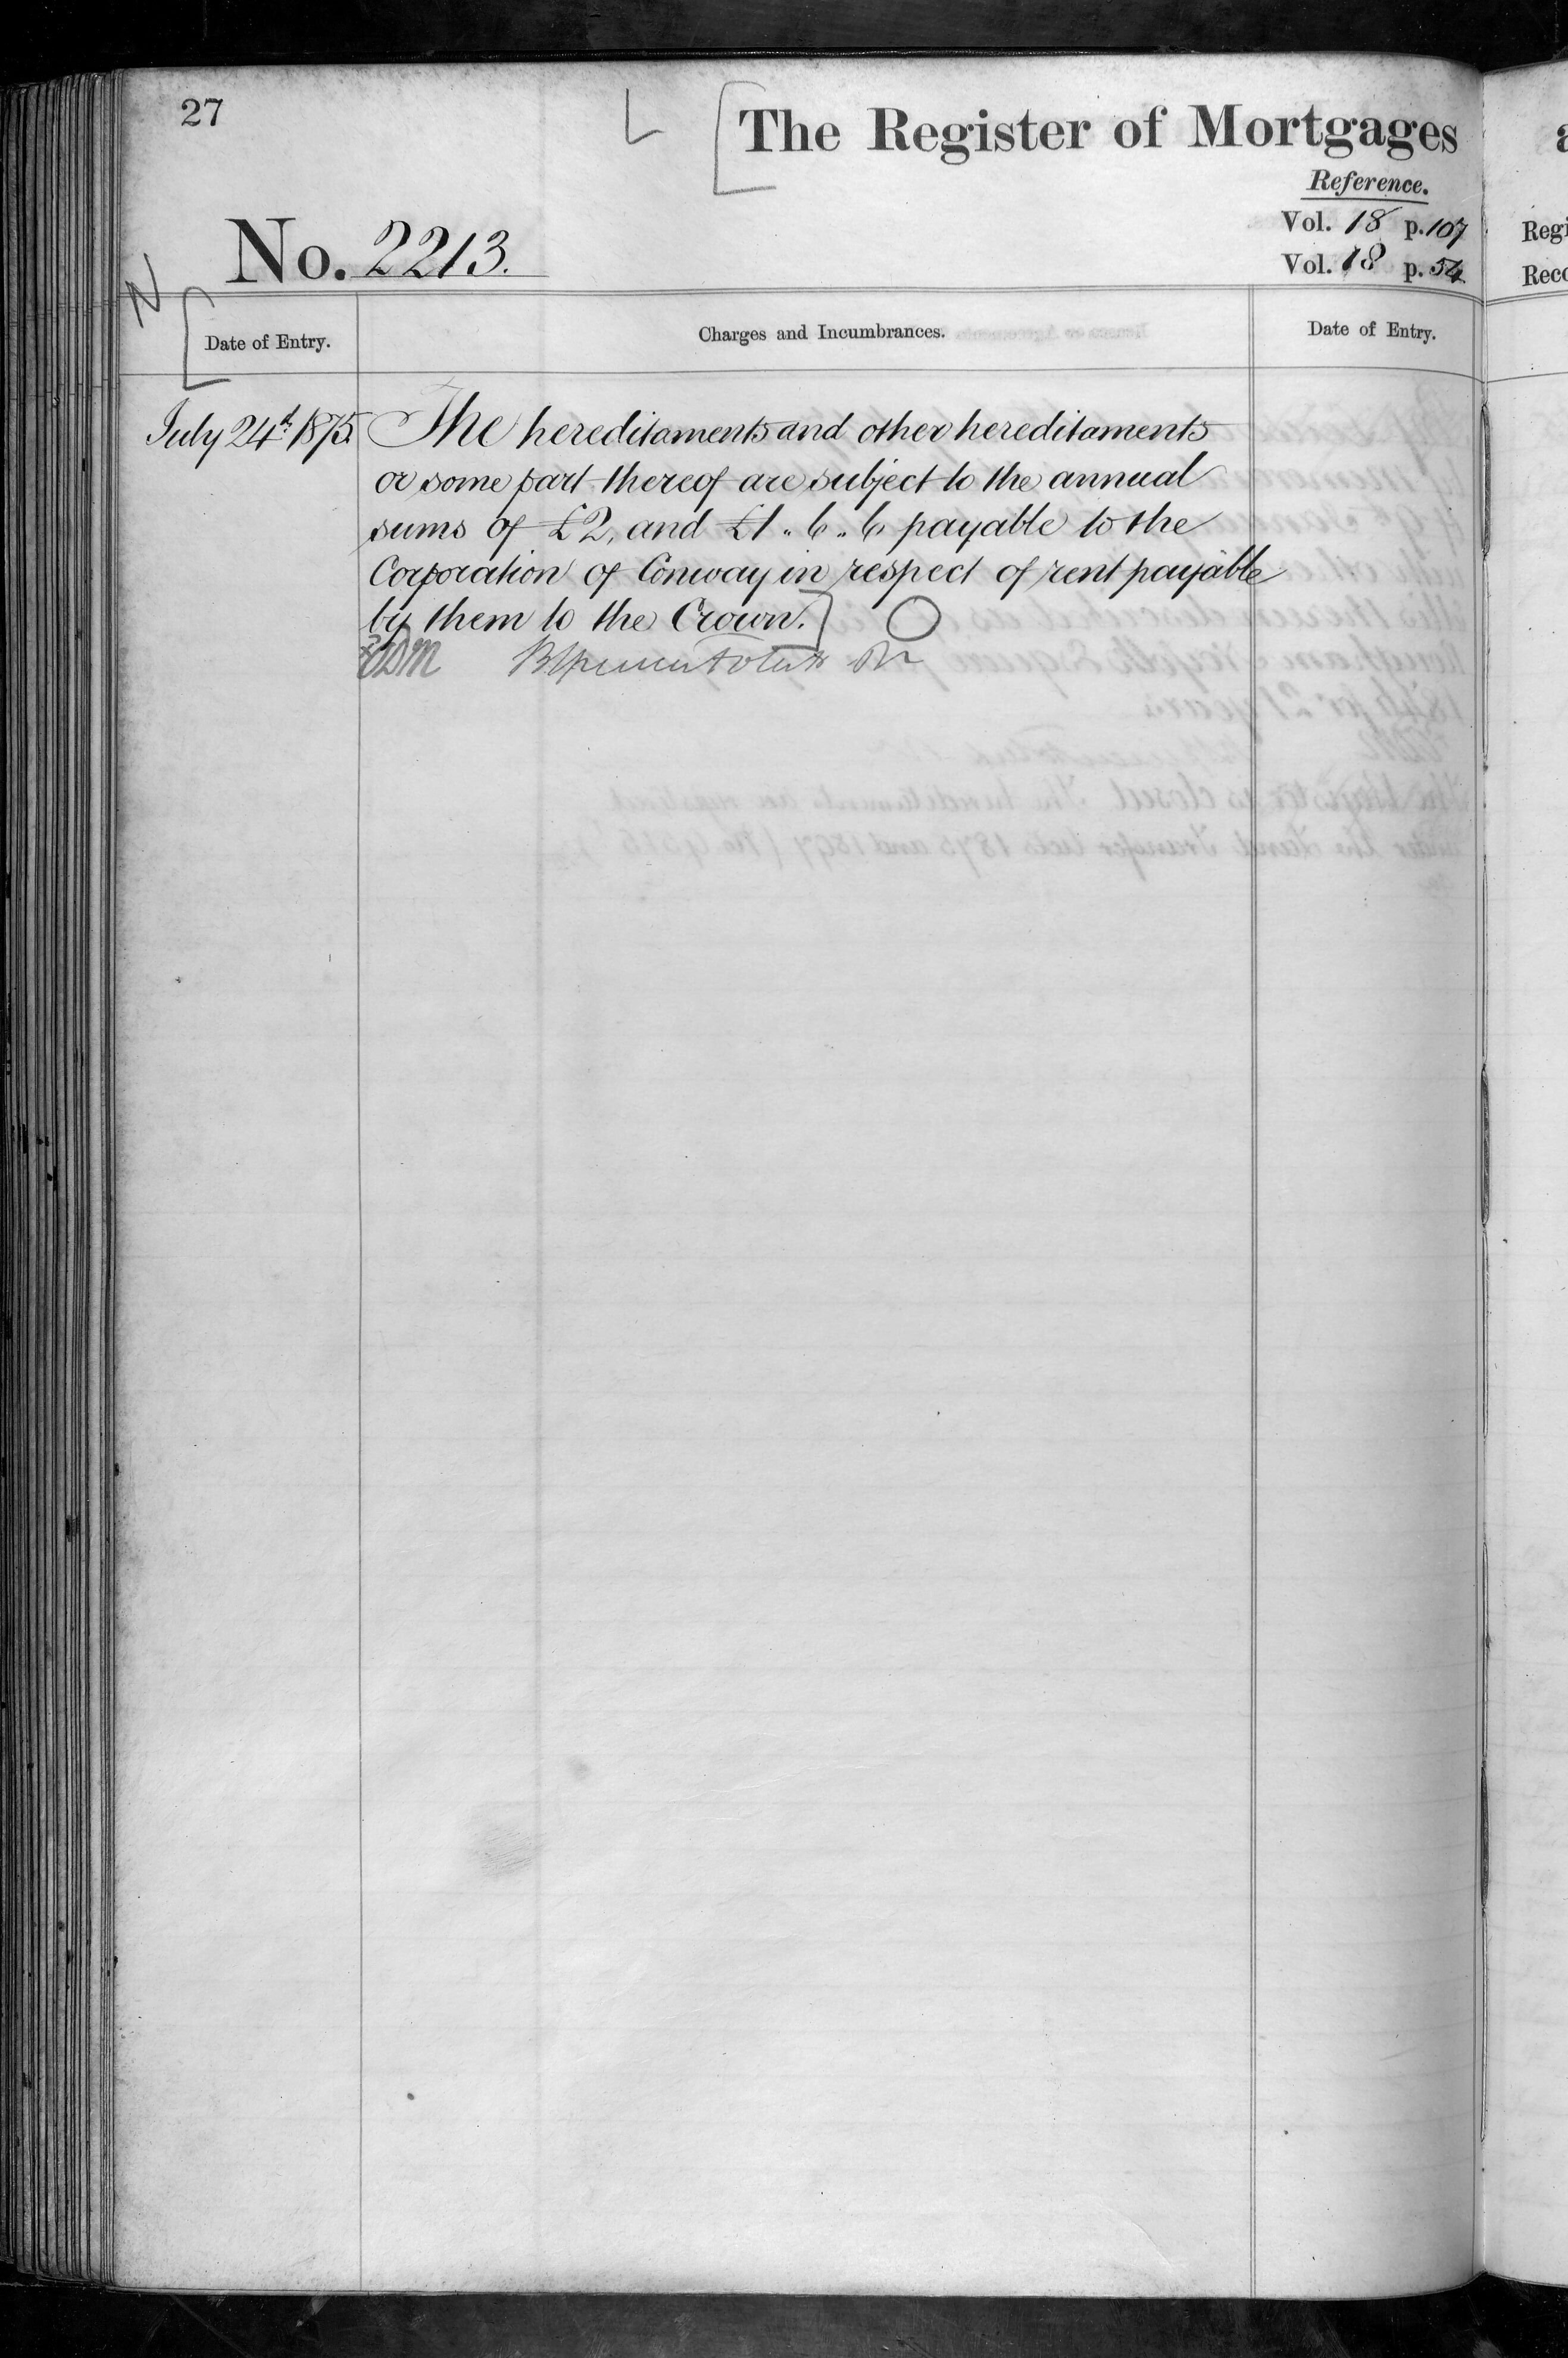 27
The Register of Mortgages
Reference.
Vol. 18 p. 107
No. 2213.
Vol. 18 p. 54
Regi
Reco
Date of Entry.
Charges and Incumbrances.
Date of Entry.
July 24th 1875.
The hereditaments and other hereditaments
or some part thereof are subject to the annual
sums of £2, and £1. 6. 6 payable to the
Corporation of Conway in respect of rent payable
by them to the Crown.